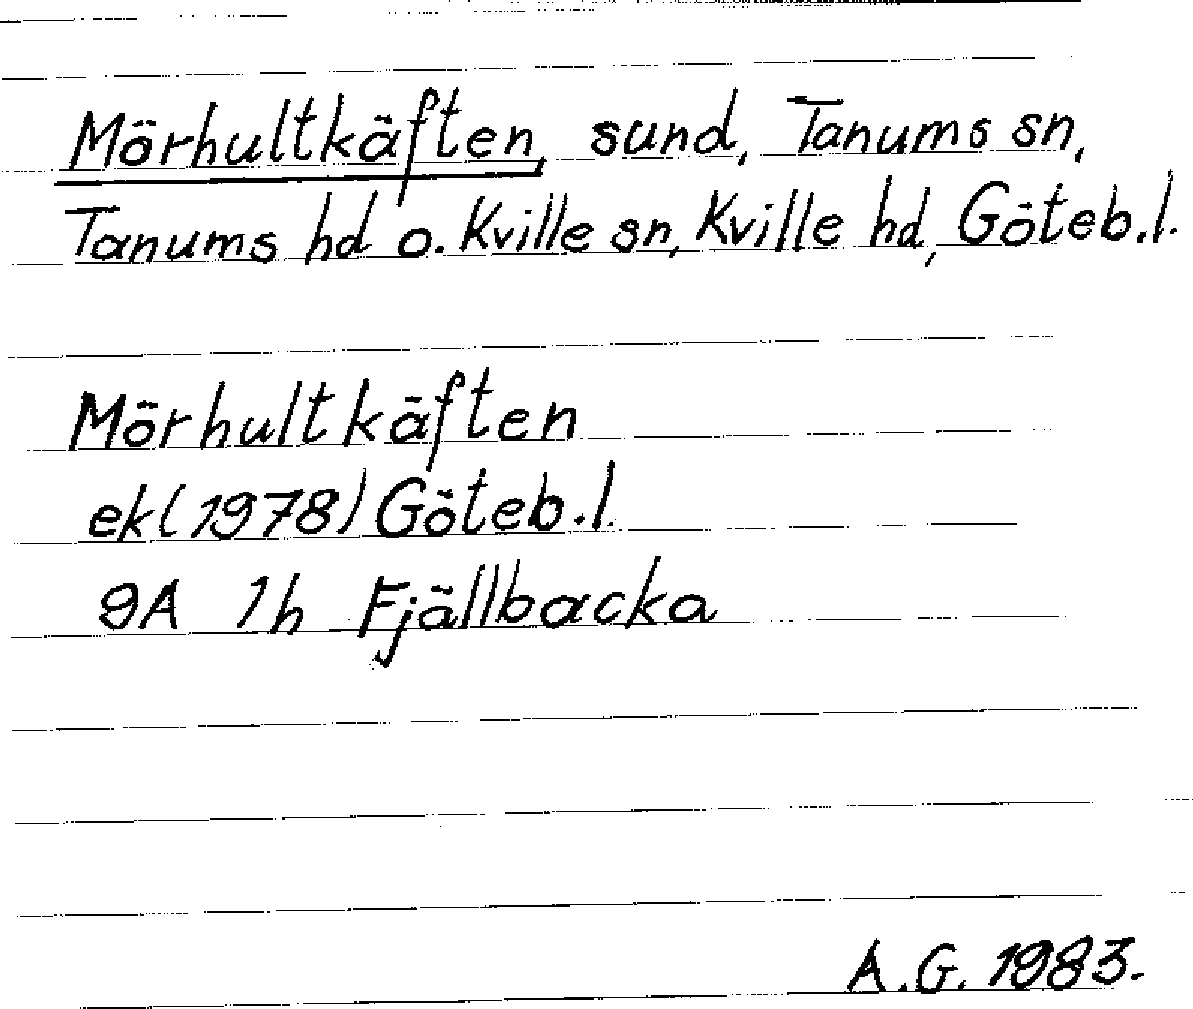 Mörhultkäften, sund, Tanums sn,
Tanums hd o. Kville sn, Kville hd, Göteb.l.
Mörhultkäften
ek (1978) Göteb.l.
9A 1h Fjällbacka
A.G. 1983.